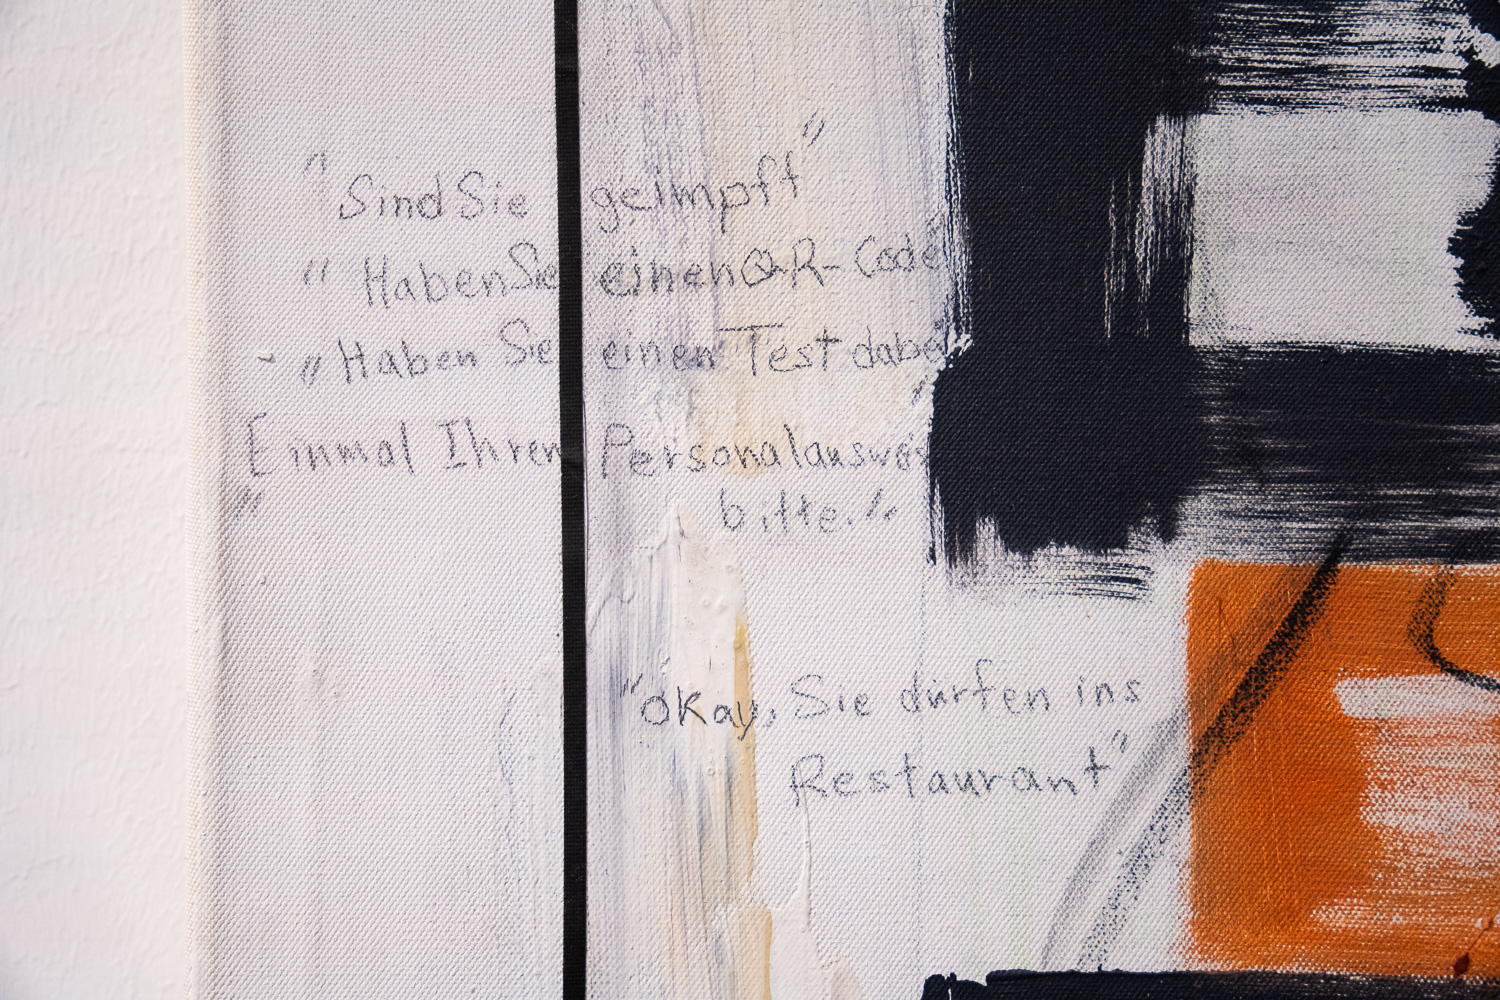 "Sind Sie geimpft"
"Haben Sie einen QR-Code
"Haben Sie einen Test dabei
Einmal Ihren Personalauswei
" bitte."
"okay, Sie dürfen ins
Restaurant"